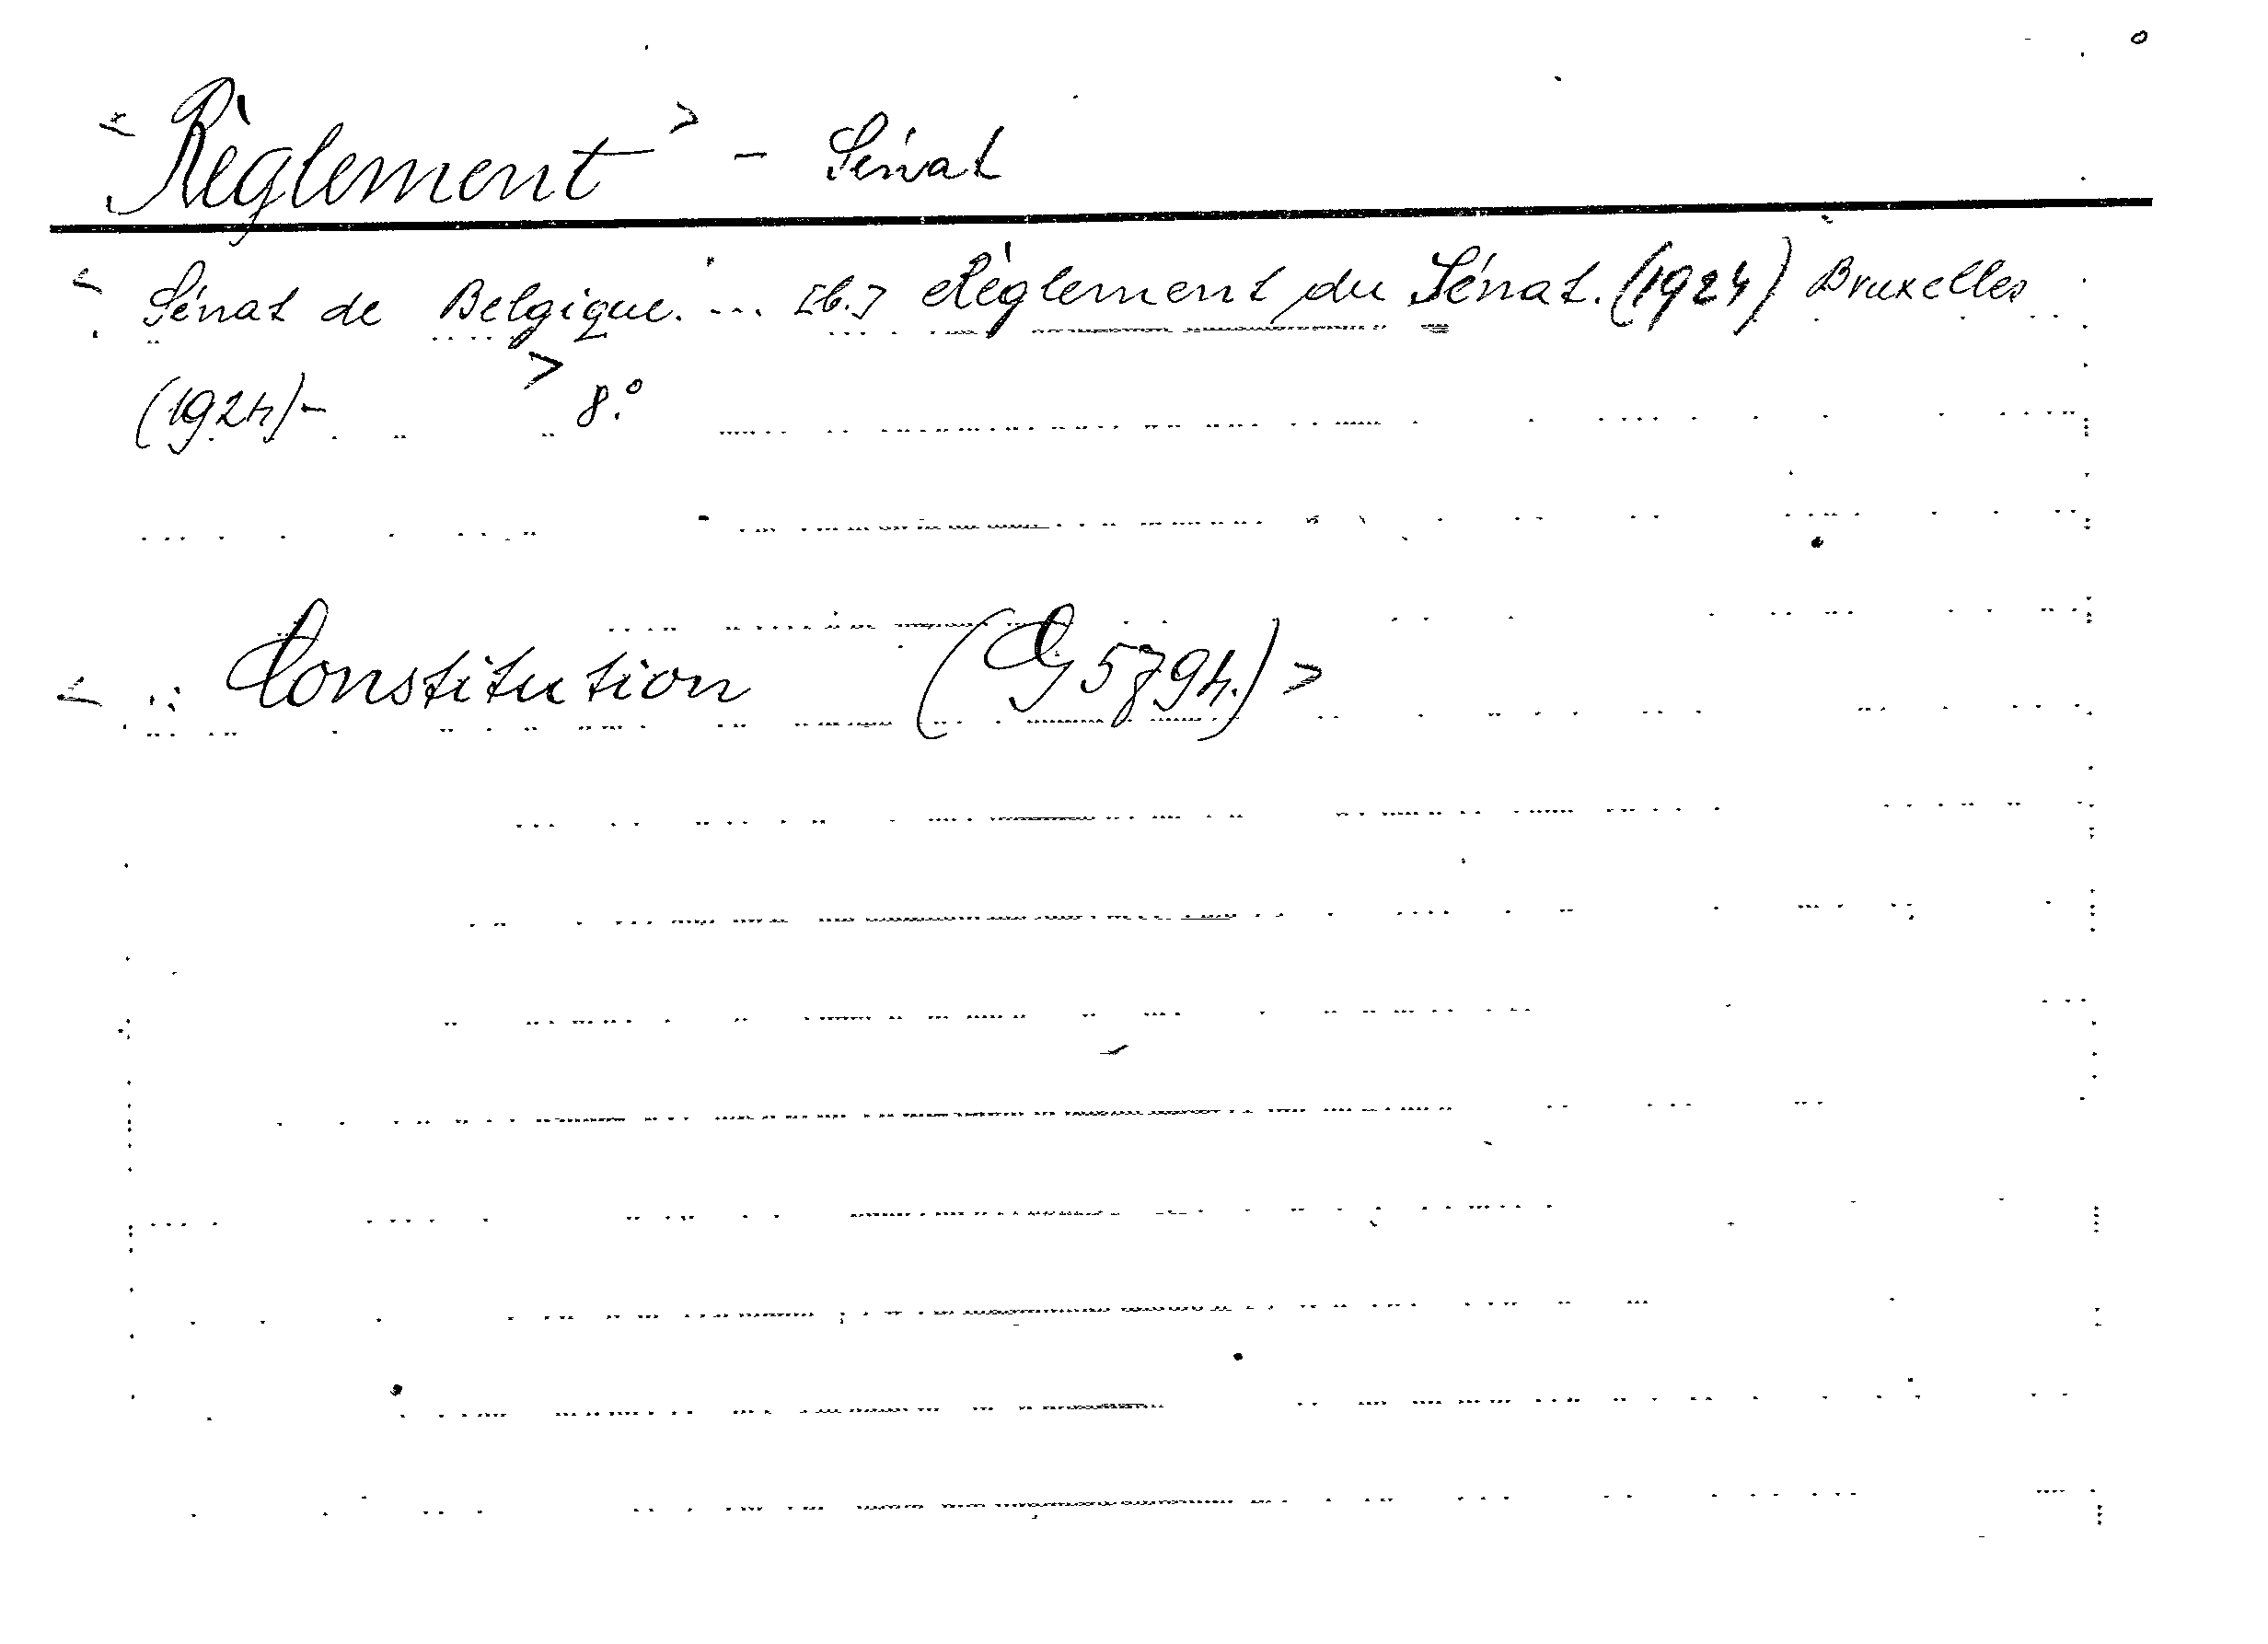 < Règlement > - Sénat
< Sénat de Belgique. ... [b.] Règlement du Sénat. (1924) Bruxelles
(1924)- > 8.°
< .: Constitution (G 5794.) >